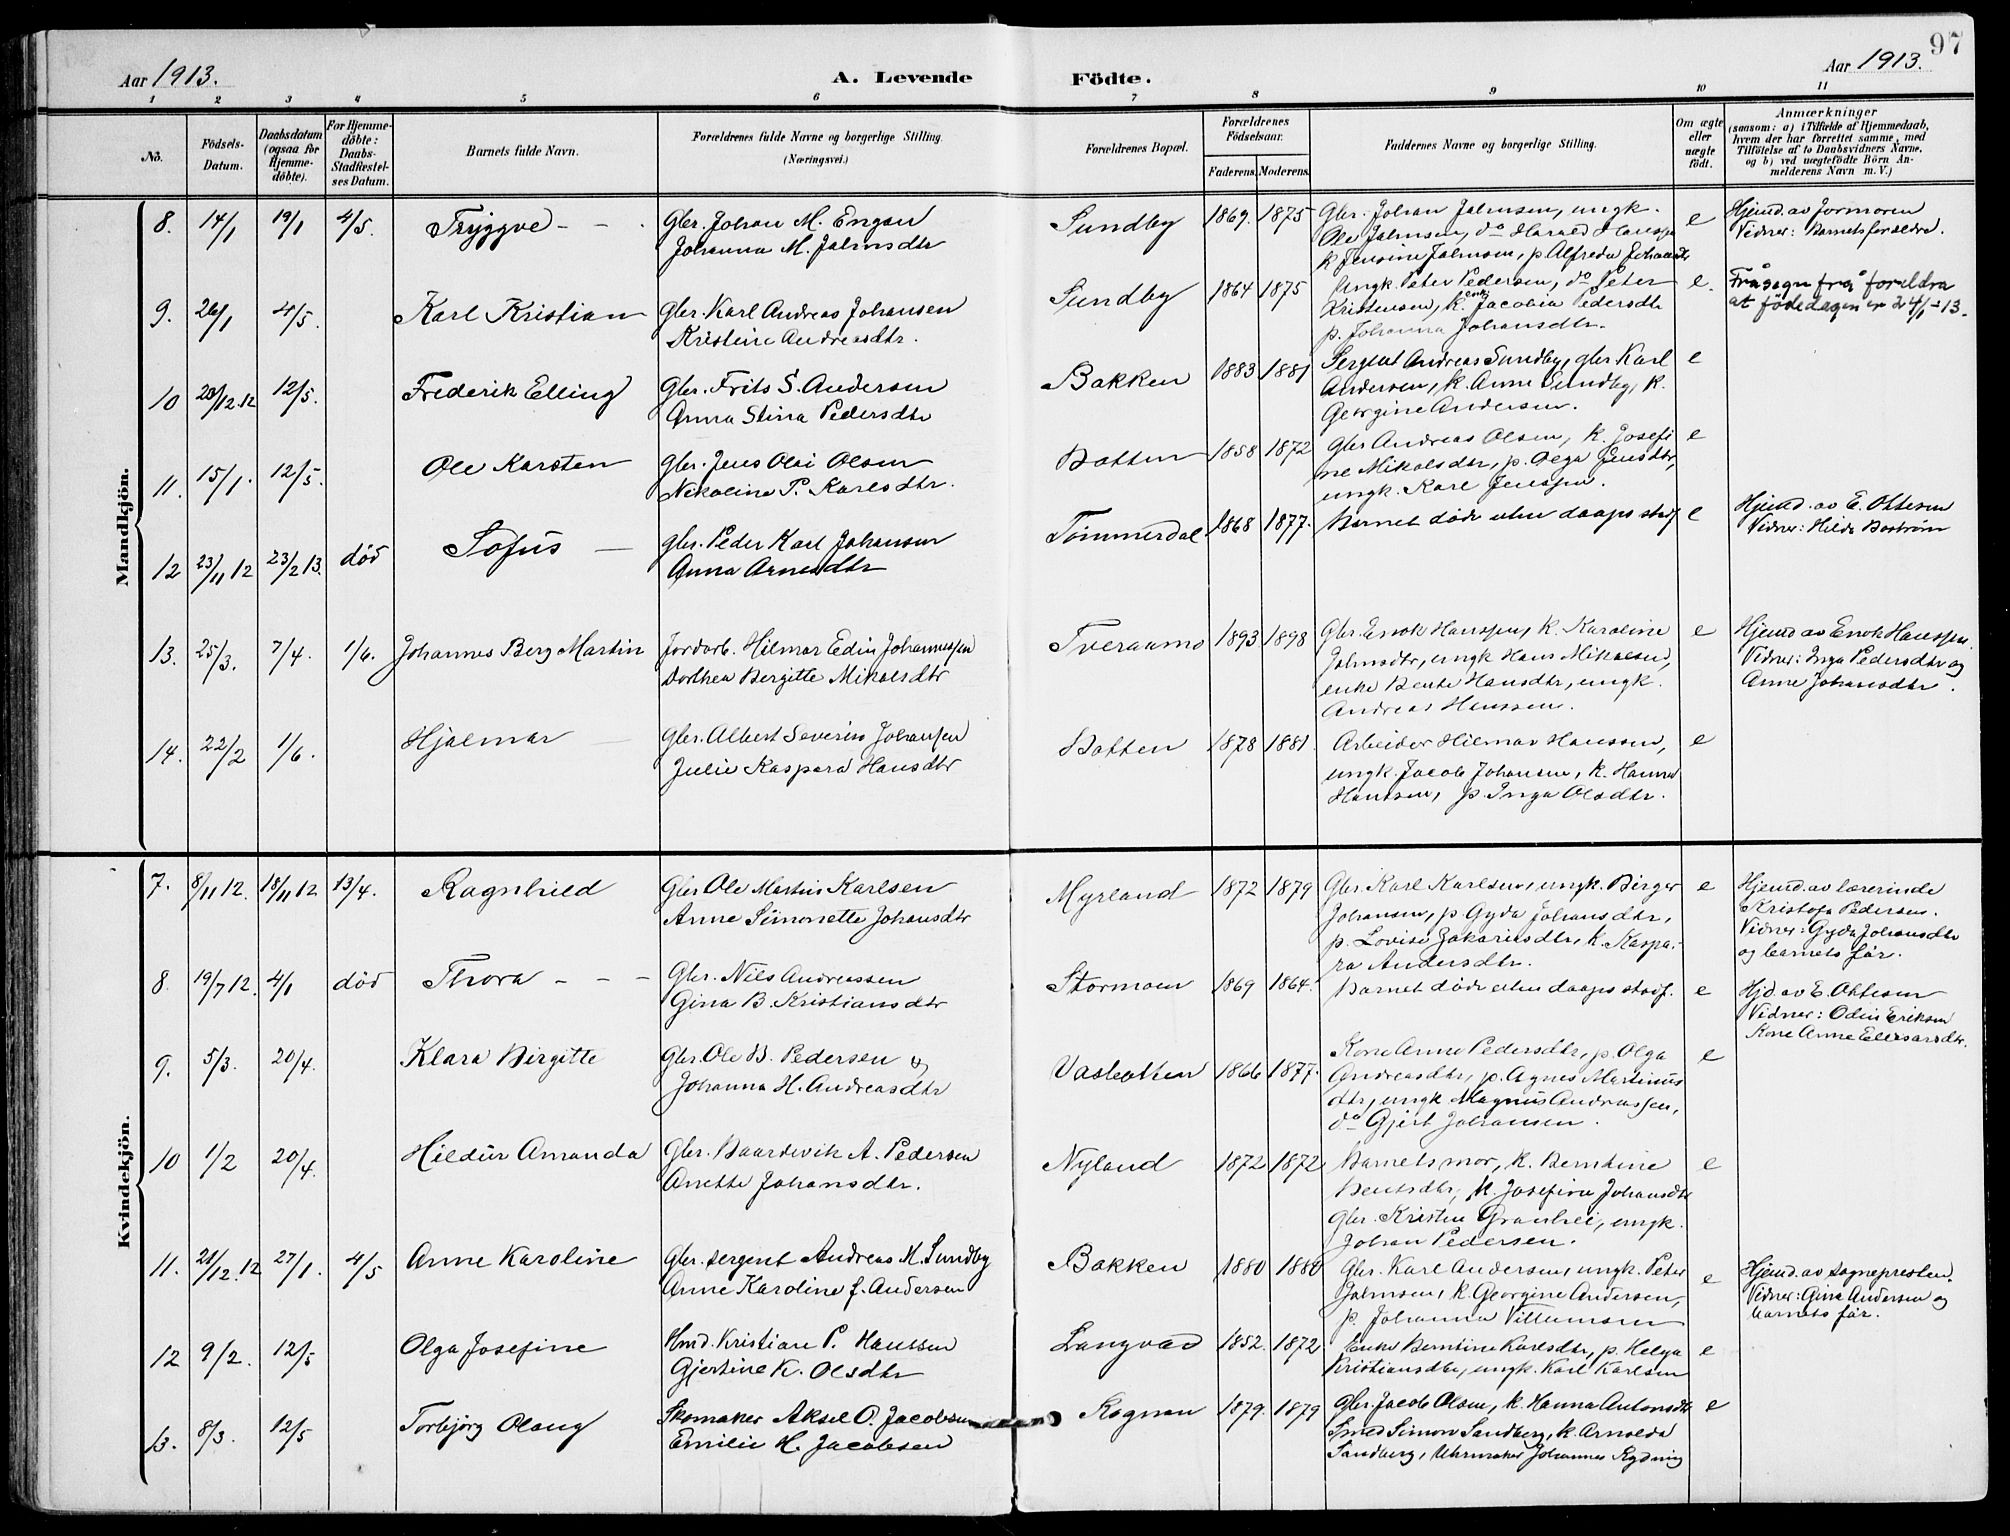 97
Aar 1913.
A. Levende Födte.
Aar 1913.
1 2 3 4 5 6 7 8 9 10 11
No.
Födsels-
Datum.
Daabsdatum
(ogsaa for
Hjemme-
döbte).
For Hjemme-
döbte:
Daabs-
Stadfæstel-
ses Datum.
Barnets fulde Navn.
Forældrenes fulde Navne og borgerlige Stilling.
(Næringsvei.)
Forældrenes Bopæl.
Forældrenes
Födselsaar.
Faderens. Moderens.
Faddernes Navne og borgerlige Stilling.
Om ægte
eller
uægte
födt.
Anmærkninger
(saasom: a) i Tilfælde af Hjemmedaab,
hvem der har forrettet samme, med
Tilföielse af to Daabsvidners Navne,
og b) ved uægtefödte Börn An-
melderens Navn m. V.)
Mandkjön.
8. 14/1 19/1 4/5. Tryggve - - .
Gbr. Johan M. Engan
Johanna M. Jalmsdtr
Sundby 1869. 1875
Gbr. Johan Jalmsen, ungk.
Ole Jalmsen, do Harald Hanssen
k Jensine Jalmsen, p Alfreda Johansdtr
e
Hjemd. av Jormoren
Vidner: Barnets foreldre.
9. 26/1 4/5. Karl Kristian
Gbr. Karl Andreas Johansen
Kristine Andreasdtr.
Sundby 1864 1875
Ungk. Peter Pedersen, do Peter
Kristensen, k. Jacobia Pedersdtr
p. Johanna Johansdtr.
e.
Fråsegn frå foreldra
at födedagen er 24/1-13.
10 28/12.12 12/5. Frederik Elling
Gbr. Frits S. Andersen
Anna Stina Pedersdtr
Bakken 1883 1881
Sergent Andreas Sundby, gbr Karl
Andersen, k. Anne Sundby, k.
Georgine Andersen.
e
11. 15/1. 12/5. Ole Karsten
Gbr. Jens Olai Olsen
Nikoline P. Karlsdtr.
Botten 1858 1872
Gbr Andreas Olsen, k. Josefi
ne Mikalsdtr, p. Olga Jensdtr,
ungk. Karl Jenssen.
e
12 23/11 12 23/2 13. död Sofus -
gbr. Peder Karl Johansen
Anna Arnesdtr
Tömmerdal 1868 1877.
Barnet döde uten daaps stadf
e
Hjemd. av E. Ottesen
Vidner: Hilda Boström
13. 25/3. 7/4. 1/6. Johannes Berg Martin
Jordarb. Hilmar Edin Johannessen
Dorthea Bergitte Mikalsdtr
Tveraamo 1893 1898
Gbr. Enok Hanssen, k. Karoline
Jalmsdtr, ungk Hans Mikalsen,
enke Bente Hansdtr, ungk.
Andreas Hanssen.
e
Hjemd av Enok Hanssen.
Vidner: Inga Pedersdtr og
Anne Johansdtr.
14. 22/2 1/6. Hjalmar -
Gbr. Albert Severin Johansen
Julie Kaspara Hansdtr
Botten 1878 1881.
Arbeider Hilmar Hanssen,
ungk. Jacob Johansen, k. Hanna
Hanssen, p. Inga Olsdtr.
e
Kvindekjön.
7. 8/11 12. 18/11 12 13/4. Ragnhild
Gbr Ole Martin Karlsen
Anne Simonette Johansdtr
Myrland 1872 1879
Gbr. Karl Karlsen, ungk. Birger
Johansen, p Gyda Johansdtr,
p. Lovise Zakariasdtr, k. Kaspa-
ra Andersdtr.
e
Hjemd. av lærerinde
Kristofa Pedersen.
Vidner: Gyda Johansdtr
og barnets far.
8. 19/7 12. 4/1 död Thora - - -
Gbr. Nils Andreassen
Gina B. Kristiansdtr
Stormoen 1869 1864.
Barnet döde uten daaps stadf.
e
Hjd. av E. Ottesen
Vidner: Odin Eriksen
Kone Anne Ellevarsdtr.
9. 5/3. 20/4. Klara Birgitte
Gbr. Ole B. Pedersen og
Johanna H. Andreasdtr
Vasbotten 1866 1877.
Kone Anne Pedersdtr, p. Olga
Andreasdtr, p. Agnes Martinus
dtr, ungk Magnus Andreassen,
do Gjert Johansen.
e
10 1/2 20/4. Hildur Amanda
Gbr. Baardevik A. Pedersen
Anette Johansdtr.
Nyland 1872 1872
Barnets mor, k. Berntine
Bentsdtr, k. Josefine Johansdtr
gbr. Kristen Granhei, ungk.
Johan Pedersen.
e
11. 21/12.12 27/1. 4/5 Anne Karoline
Gbr. sergent Andreas M. Sundby
Anne Karoline f. Andersen
Bakken 1880 1880
Gbr. Karl Andersen, ungk. Peter
Jalmsen, k Georgine Andersen,
p. Johanna Villumsen
e
Hjemd. av sognepresten.
Vidner: Gina Andersen og
barnets far.
12 9/2. 12/5 Olga Josefine
Hmd. Kristian P. Hanssen
Gjertine K. Olsdtr
Langvad 1852. 1872
Enke Berntine Karlsdtr, p. Helga
Kristiansdtr, ungk. Karl Karlsen
e
13. 8/3. 12/5 Torbjörg Olaug
Skomaker Aksel O. Jacobsen
Emilie H. Jacobsen
Rognan 1879. 1879
Gbr. Jacob Olsen, k. Hanna Antonsdtr
Smed Simon Sandberg, k. Arnolda
Sandberg, Uhrmaker Johannes Rydning
e